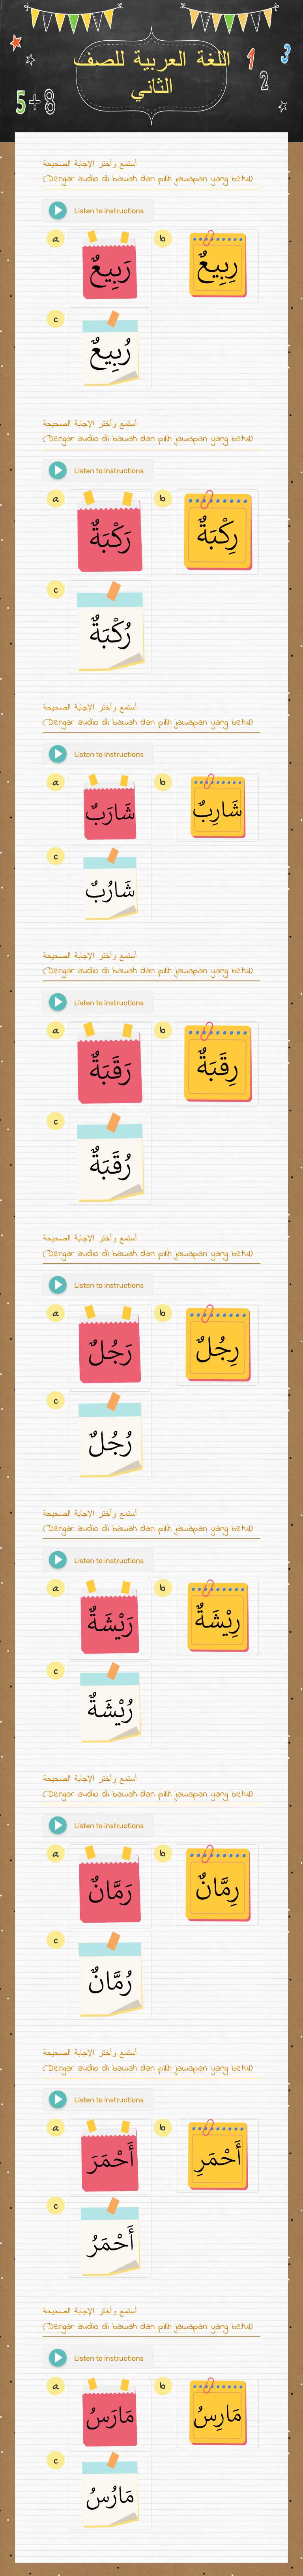 اللغة العربية للصف
الثاني
1
2
3
5+8
أستمع وأختر الإجابة الصحيحة
(Dengar audio di bawah dan pilih jawapan yang betul)
Listen to instructions
a
رَبِيعٌ
b
رِبِيعٌ
c
رُبِيعٌ
أستمع وأختر الإجابة الصحيحة
(Dengar audio di bawah dan pilih jawapan yang betul)
Listen to instructions
a
رَكْبَةٌ
b
رِكْبَةٌ
c
رُكْبَةٌ
أستمع وأختر الإجابة الصحيحة
(Dengar audio di bawah dan pilih jawapan yang betul)
Listen to instructions
a
شَارَبٌ
b
شَارِبٌ
c
شَارُبٌ
أستمع وأختر الإجابة الصحيحة
(Dengar audio di bawah dan pilih jawapan yang betul)
Listen to instructions
a
رَقَبَةٌ
b
رِقَبَةٌ
c
رُقَبَةٌ
أستمع وأختر الإجابة الصحيحة
(Dengar audio di bawah dan pilih jawapan yang betul)
Listen to instructions
a
رَجُلٌ
b
رِجُلٌ
c
رُجُلٌ
أستمع وأختر الإجابة الصحيحة
(Dengar audio di bawah dan pilih jawapan yang betul)
Listen to instructions
a
رَيْشَةٌ
b
رِيْشَةٌ
c
رُيْشَةٌ
أستمع وأختر الإجابة الصحيحة
(Dengar audio di bawah dan pilih jawapan yang betul)
Listen to instructions
a
رَمَّانٌ
b
رِمَّانٌ
c
رُمَّانٌ
أستمع وأختر الإجابة الصحيحة
(Dengar audio di bawah dan pilih jawapan yang betul)
Listen to instructions
a
أَحْمَرَ
b
أَحْمَرِ
c
أَحْمَرُ
أستمع وأختر الإجابة الصحيحة
(Dengar audio di bawah dan pilih jawapan yang betul)
Listen to instructions
a
مَارَسُ
b
مَارِسُ
c
مَارُسُ